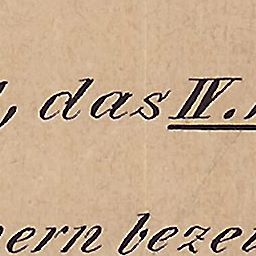 , das IV.
ern bezei